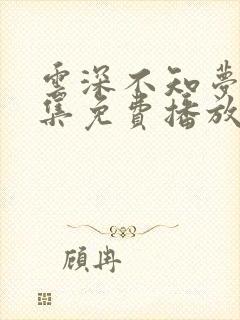 雲深不知夢
集免費播放
顧冉